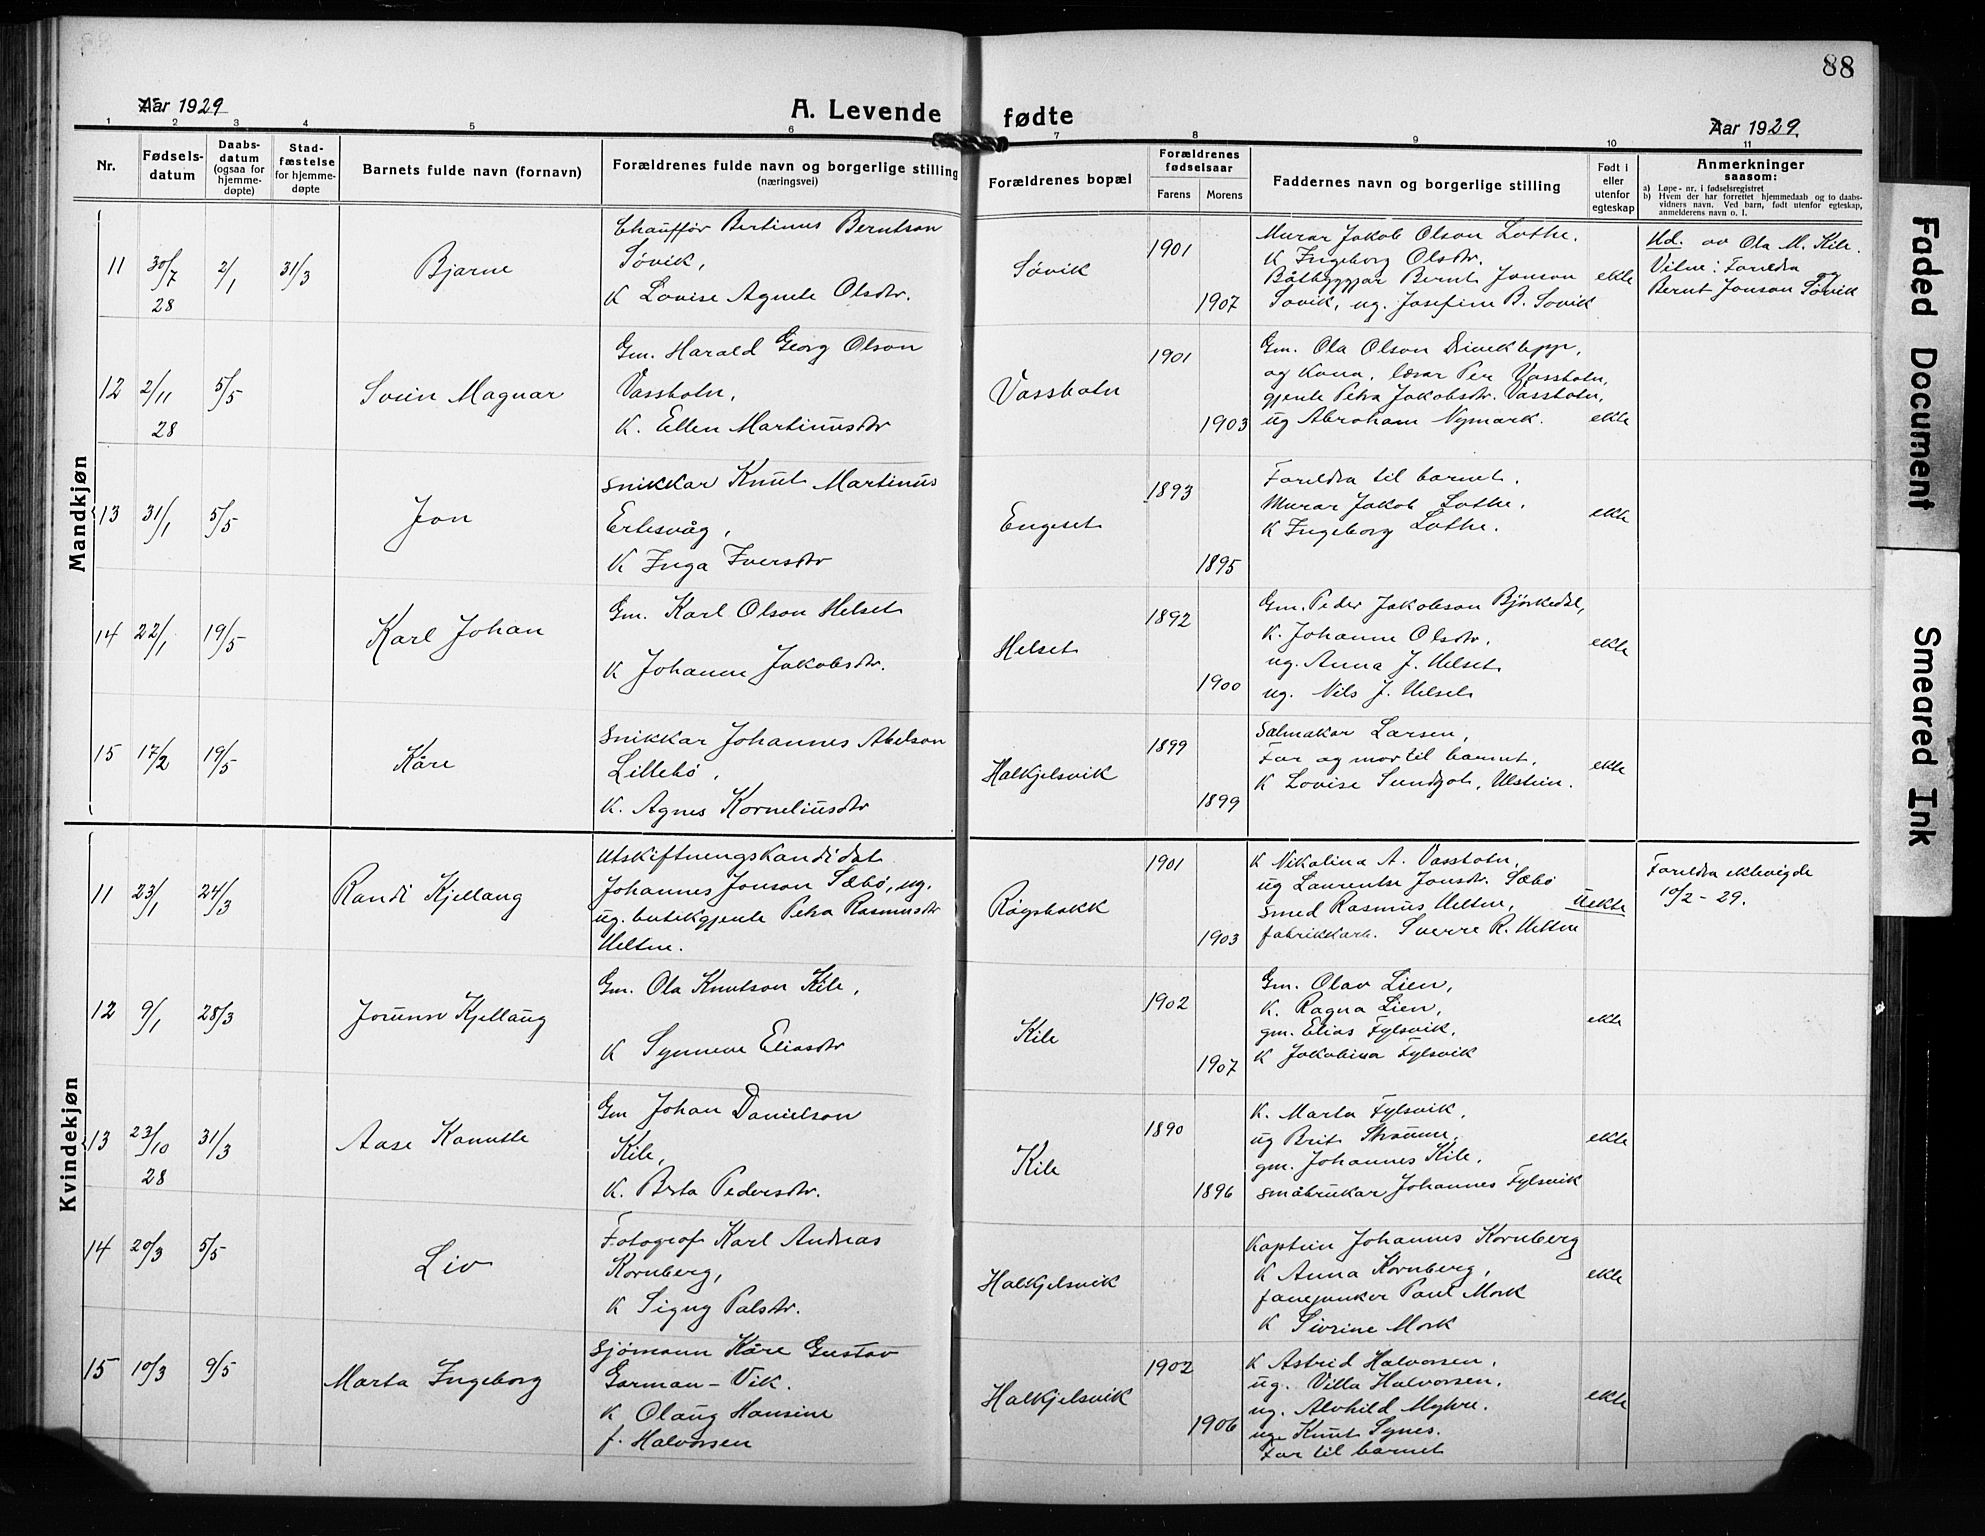 88
Aar 1929
A. Levende fødte
Aar 1929.
1 2 3 4 5 6 7 8 9 10 11
Nr.
Fødsels-
datum
Daabs-
datum
(ogsaa for
hjemme-
døpte)
Stad-
fæstelse
for hjemme-
døpte
Barnets fulde navn (fornavn)
Forældrenes fulde navn og borgerlige stilling
(næringsvei)
Forældrenes bopæl
Forældrenes
fødselsaar
Farens Morens
Faddernes navn og borgerlige stilling
Født i
eller
utenfor
egteskap
Anmerkninger
saasom:
a) Løpe-nr. i fødselsregistret
b) Hvem der har forrettet hjemmedaab og to daabs-
vidners navn. Ved barn, født utenfor egteskap,
anmelderens navn o. l.
Mandkjøn
11 30/7 28 2/1 31/3
Bjarne
Chauffør Bertinus Berntson
Søvik,
K Lovise Agnete Olsdtr.
Søvik
1901
1907
Murar Jakob Olson Lothe.
K Ingeborg Olsdtr.
Båtbyggjar Bernt Jonson
Søvik, ug. Josefine B. Søvik
ekte
Hd. av Ola M. Kile.
Vitne: Foreldra og
Bernt Jonson Søvik
12 2/11 28 5/5
Svein Magnar
Gm. Harald Georg Olson
Vassbotn,
K. Ellen Martinusdtr
Vassbotn
1901
1903
Gm. Ola Olson
og kona, lærar Per Vassbotn,
gjente Petra Jakobsdtr. Vassbotn,
ug Abraham Nymark.
ekte
13 31/1 5/5
Jon
Snikkar Knut Martinus
Ertesvåg,
K Inga Iversdtr
Engeset
1893
1895
Foreldra til barnet.
Murar Jakob Lothe.
K Ingeborg Lothe.
ekte
14 22/1 19/5
Karl Johan
Gm. Karl Olson Helset
K Johanne Jakobsdtr.
Helset
1892
1900
Gm. Peder Jakobson Bjørkedal,
K. Johanne Olsdtr.
ug. Anna J. Helset
ug. Nils J. Helset
ekte
15 17/2 19/5
Kåre
Snikkar Johannes Abelson
Lillebø,
K. Agnes Korneliusdtr
Halkjelsvik
1899
1899
Salmakar Larsen,
Far og mor til barnet,
K Lovise Sundgot, Ulstein.
ekte
Kvindekjøn
11 23/1 24/3
Randi Kjellaug
Utskiftningskandidat
Johannes Jonson Sæbø, ug.
ug. butikgjente Petra Rasmusdtr
Heltne.
Røysbakk
1901
1903
K Nikolina A. Vassbotn,
ug Laurentse Jonsdtr. Sæbø
Smed Rasmus Heltne,
fabrikkarb. Sverre R. Heltne
Uekte
Foreldra ektevigde
10/2-29.
12 9/1 28/3
Jorunn Kjellaug
Gm. Ola Knutson Kile,
K Synneve Eliasdtr
Kile
1902
1907
Gm. Olav Lien,
K. Ragna Lien,
gm. Elias Fylsvik,
K Jakobina Fylsvik
ekte
13 23/10 28 31/3
Aase Kanutte
Gm Johan Danielson
Kile,
K. Berta Pedersdtr.
Kile
1890
1896
K. Marta Fylsvik,
ug Brit Straume,
gm. Johannes Kile,
småbrukar Johannes Fylsvik
ekte
14 20/3 5/5
Liv
Fotograf Karl Andreas
Kornberg,
K Signy Palsdtr.
Halkjelsvik
Kaptein Johannes Kornberg
K Anna Kornberg,
fanejunker Paul Mork
K Sivrine Mork
ekte
15 10/3 9/5
Marta Ingeborg
Sjømann Kåre Gustav
Garman-Vik.
K Olaug Hansine
f. Halvorsen
Halkjelsvik
1902
1906
K Astrid Halvorsen,
ug. Villa Halvorsen,
ug. Alvhild Myhre.
ug. Knut Synes.
Far til barnet
ekte
Faded Document
Smeared Ink